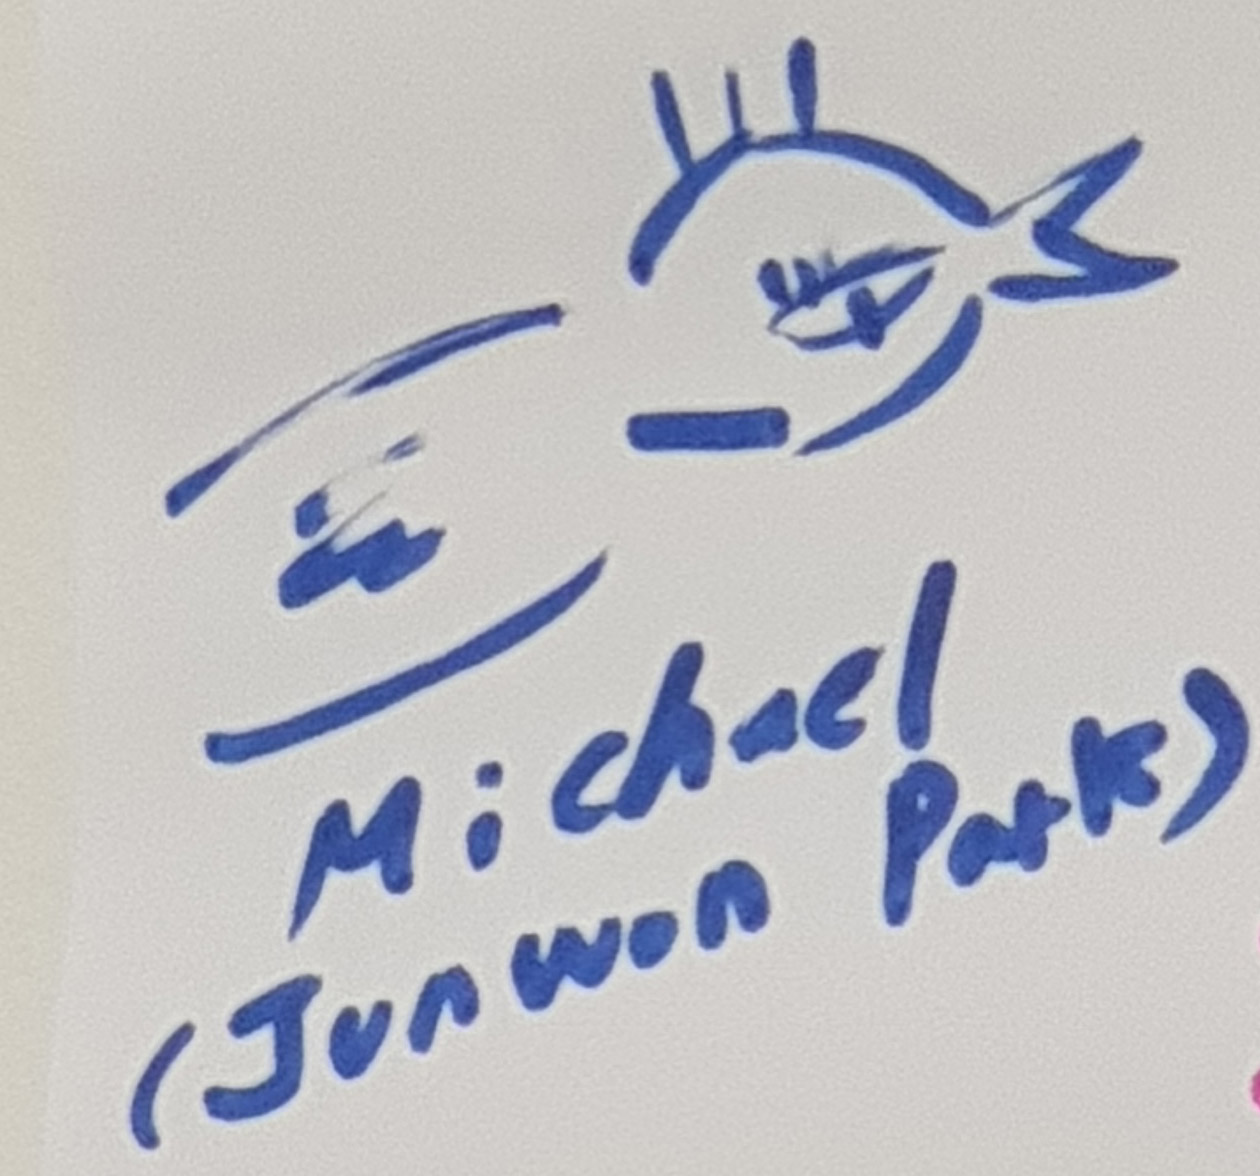 Michael
(Junwon Park)